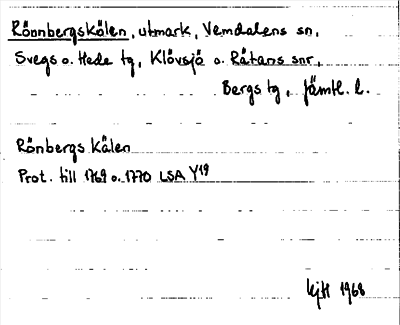 Rönnbergskälen, utmark, Vemdalens sn,
Svegs o. Hede tg, Klövsjö o. Rätans snr,
Bergs tg, Jämtl. l.
Rönbergs Kälen
Prot. till 1769 o. 1770 LSA Y19
1968